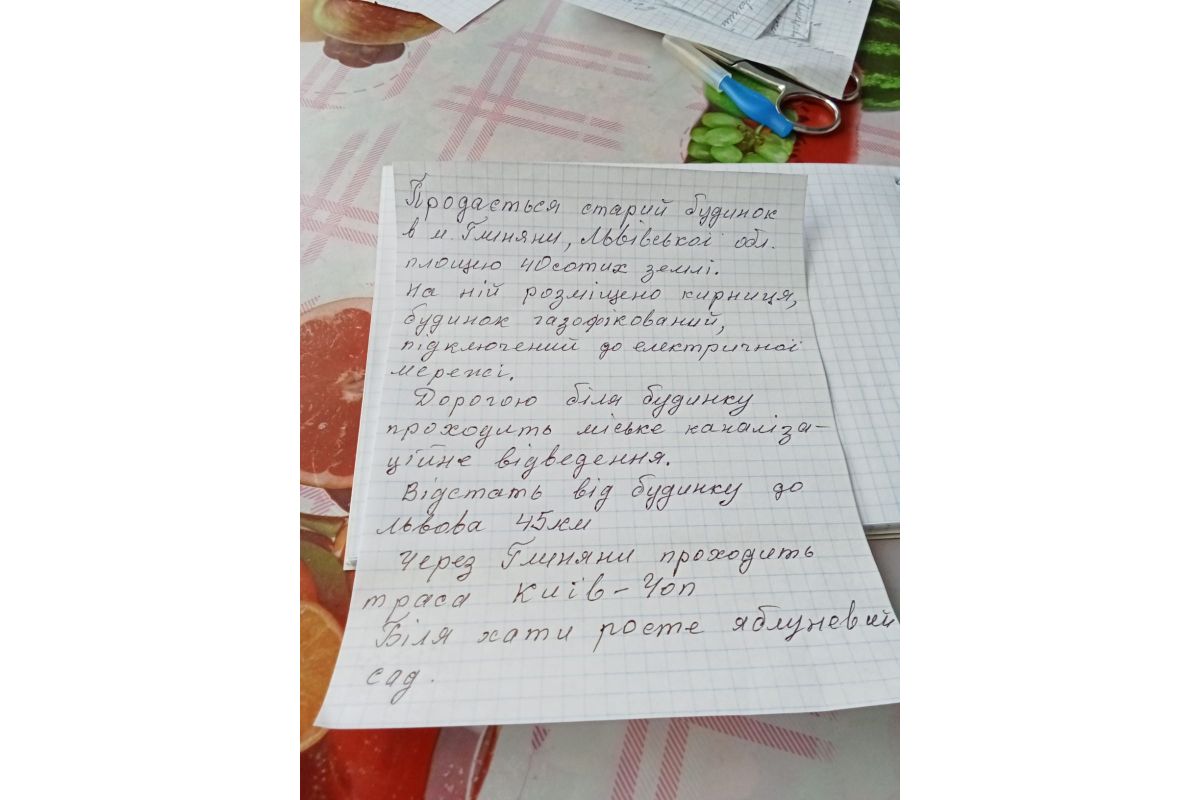 Продається старий будинок
в м. Глиняни, Львівської обл.
площею 40 сотих землі.
На ній розміщено кирниця,
будинок газофікований,
підключений до електричної
мережі.
Дорогою біля будинку
проходить міське каналіза-
ційне відведення.
Відстать від будинку до
Львова 45 км
Через Глиняни проходить
траса Київ - Чоп
Біля хати росте яблуневий
сад.